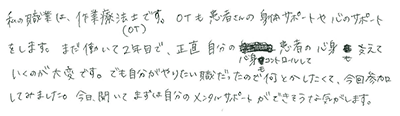 私の職業は、作業療法士です。OTも患者さんの身体サポートや心のサポート
(OT)
をします。まだ働いて2年目で、正直自分の患者の心身も支えて
心身コントロールしても
いくのが大変です。でも自分がやりたい職だったので何とかしたくて、今回参加
してみました。今日、聞いてまずは自分のメンタルサポートができそうな気がします。